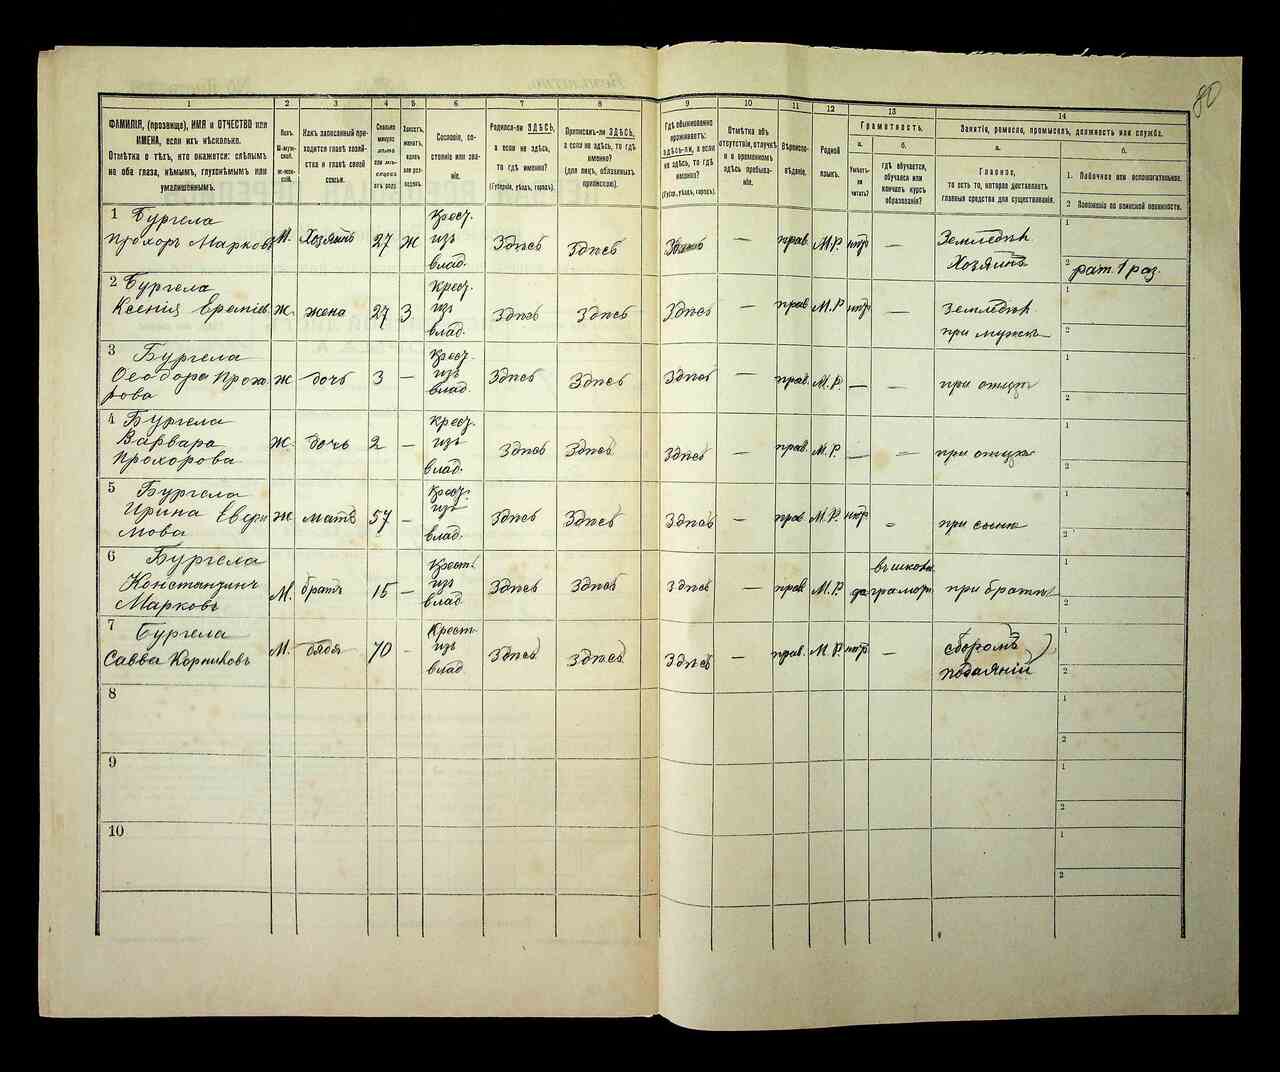 80
1 2 3 4 5 6 7 8 9 10 11 12 13 14
ФАМИЛІЯ, (прозвище), ИМЯ и ОТЧЕСТВО или
ИМЕНА, если ихъ нѣсколько.
Отмѣтка о тѣхъ, кто окажется: слѣпымъ
на оба глаза, нѣмымъ, глухонѣмымъ или
умалишеннымъ.
Полъ.
М-муж-
ской.
Ж-жен-
скій.
Какъ записанный при-
ходится главѣ хозяй-
ства и главѣ своей
семьи.
Сколько
минуло
лѣтъ
Холостъ,
женатъ,
вдовъ
или раз-
веденъ
Сословіе, со-
стояніе или зва-
ніе.
Родился-ли ЗДѢСЬ,
а если не здѣсь,
то гдѣ именно?
(Губернія, уѣздъ, городъ).
Приписанъ-ли ЗДѢСЬ,
а если не здѣсь, то гдѣ
именно?
(для лицъ, обязанныхъ
припискою).
Гдѣ обыкновенно
проживаетъ:
здѣсь-ли, а если
не здѣсь, то гдѣ
именно?
(Губер., уѣздъ, городъ).
Отмѣтка объ
отсутствіи, отлучкѣ
и о временномъ
здѣсь пребыва-
ніи.
Вѣроиспо-
вѣданіе.
Родной
языкъ.
Грамотность.
а.
Умѣетъ-
ли
читать?
б.
гдѣ обучается,
обучался или
кончилъ курсъ
образованія?
Занятіе, ремесло, промыселъ, должность или служба.
а.
Главное,
то есть то, которое доставляетъ
главныя средства для существованія.
б.
1. Побочное или вспомогательное.
2 Положеніе по воинской повинности.
1 Бургела
Прохоръ Марковъ М. Хозяинъ 27 Ж Крест. изъ влад. Здѣсь Здѣсь Здѣсь — прав. М.Р. нтъ — Земледѣл Хозяинъ
1
2 рат 1 раз.
2 Бургела
Ксенія Ж. жена 27 З Крест. изъ влад. Здѣсь Здѣсь Здѣсь — прав. М.Р. нтъ — Земледѣл при мужѣ
1
2
3 Бургела
Ѳеодора Прохо
рова Ж дочь 3 — Крест. изъ влад. Здѣсь Здѣсь Здѣсь — прав. М.Р. — — при отцѣ
1
2
4 Бургела
Варвара
Прохорова Ж. дочь 2 — крест. изъ влад. Здѣсь Здѣсь Здѣсь — прав. М.Р. — — при отцѣ
1
2
5 Бургела
Ирина
мова Ж мать 57 — Крест. изъ влад. Здѣсь Здѣсь Здѣсь — прав М.Р. нтъ — при сынѣ
1
2
6 Бургела
Константинъ
Марковъ М. братъ 15 — Крест. изъ влад Здѣсь Здѣсь Здѣсь — прав М.Р. да въ школѣ грамоты при братѣ
1
2
7 Бургела
Савва М. дядя 70 - Крест. изъ влад. Здѣсь Здѣсь Здѣсь — прав. М.Р. нтъ — сборомъ подаяній
1
2
8
1
2
9
1
2
10
1
2